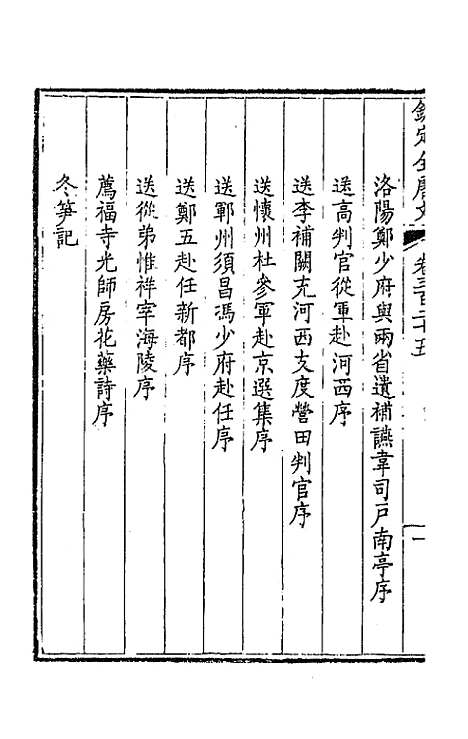 欽定全唐文
卷三百二十五
一
洛陽鄭少府與兩省遺補讌韋司戶南亭序
送高判官從軍赴河西序
送李補闕充河西支度營田判官序
送懷州杜參軍赴京選集序
送鄆州須昌馮少府赴任序
送鄭五赴任新都序
送從弟惟祥宰海陵序
薦福寺光師房花藥詩序
冬筍記